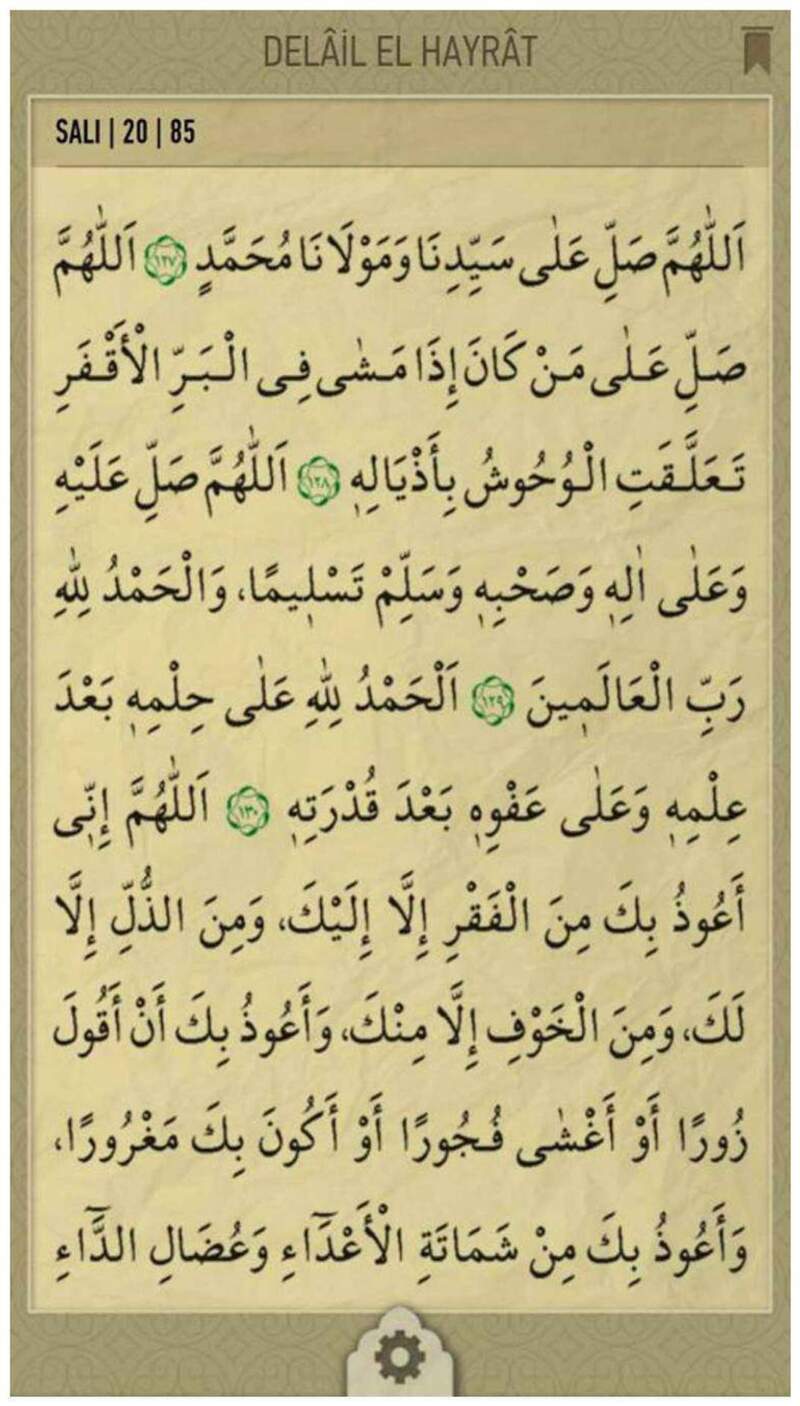 DELÂİL EL HAYRÂT
SALI | 20 | 85
اَللّٰهُمَّ صَلِّ عَلٰى سَيِّدِنَا وَمَوْلَانَا مُحَمَّدٍ ١٢٧ اَللّٰهُمَّ
صَلِّ عَلٰى مَنْ كَانَ إِذَا مَشٰى فِى الْبَرِّ الْأَقْفَرِ
تَعَلَّقَتِ الْوُحُوشُ بِأَذْيَالِهٖ ١٢٨ اَللّٰهُمَّ صَلِّ عَلَيْهِ
وَعَلٰى اٰلِهٖ وَصَحْبِهٖ وَسَلِّمْ تَسْلٖيمًا، وَالْحَمْدُ لِلّٰهِ
رَبِّ الْعَالَمٖينَ ١٢٩ اَلْحَمْدُ لِلّٰهِ عَلٰى حِلْمِهٖ بَعْدَ
عِلْمِهٖ وَعَلٰى عَفْوِهٖ بَعْدَ قُدْرَتِهٖ ١٣٠ اَللّٰهُمَّ إِنّٖى
أَعُوذُ بِكَ مِنَ الْفَقْرِ إِلَّا إِلَيْكَ، وَمِنَ الذُّلِّ إِلَّا
لَكَ، وَمِنَ الْخَوْفِ إِلَّا مِنْكَ، وَأَعُوذُ بِكَ أَنْ أَقُولَ
زُورًا أَوْ أَغْشٰى فُجُورًا أَوْ أَكُونَ بِكَ مَغْرُورًا،
وَأَعُوذُ بِكَ مِنْ شَمَاتَةِ الْأَعْدَٓاءِ وَعُضَالِ الدَّٓاءِ